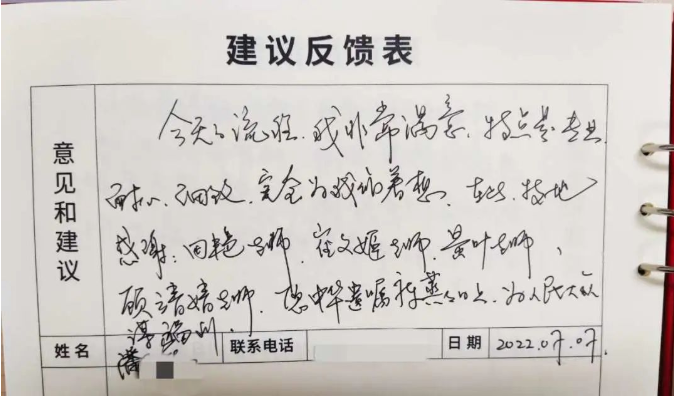 建议反馈表
意见和建议
今天的流程,我非常满意,特点是专业
耐心、细致,完全为我们着想,在此,特地
感谢:田艳老师、崔文姬老师、黄叶老师、
顾婧婧老师,愿中华遗嘱蒸蒸日上,为人民大众
谋福利。
姓名 潘 联系电话 日期 2022.07.07.